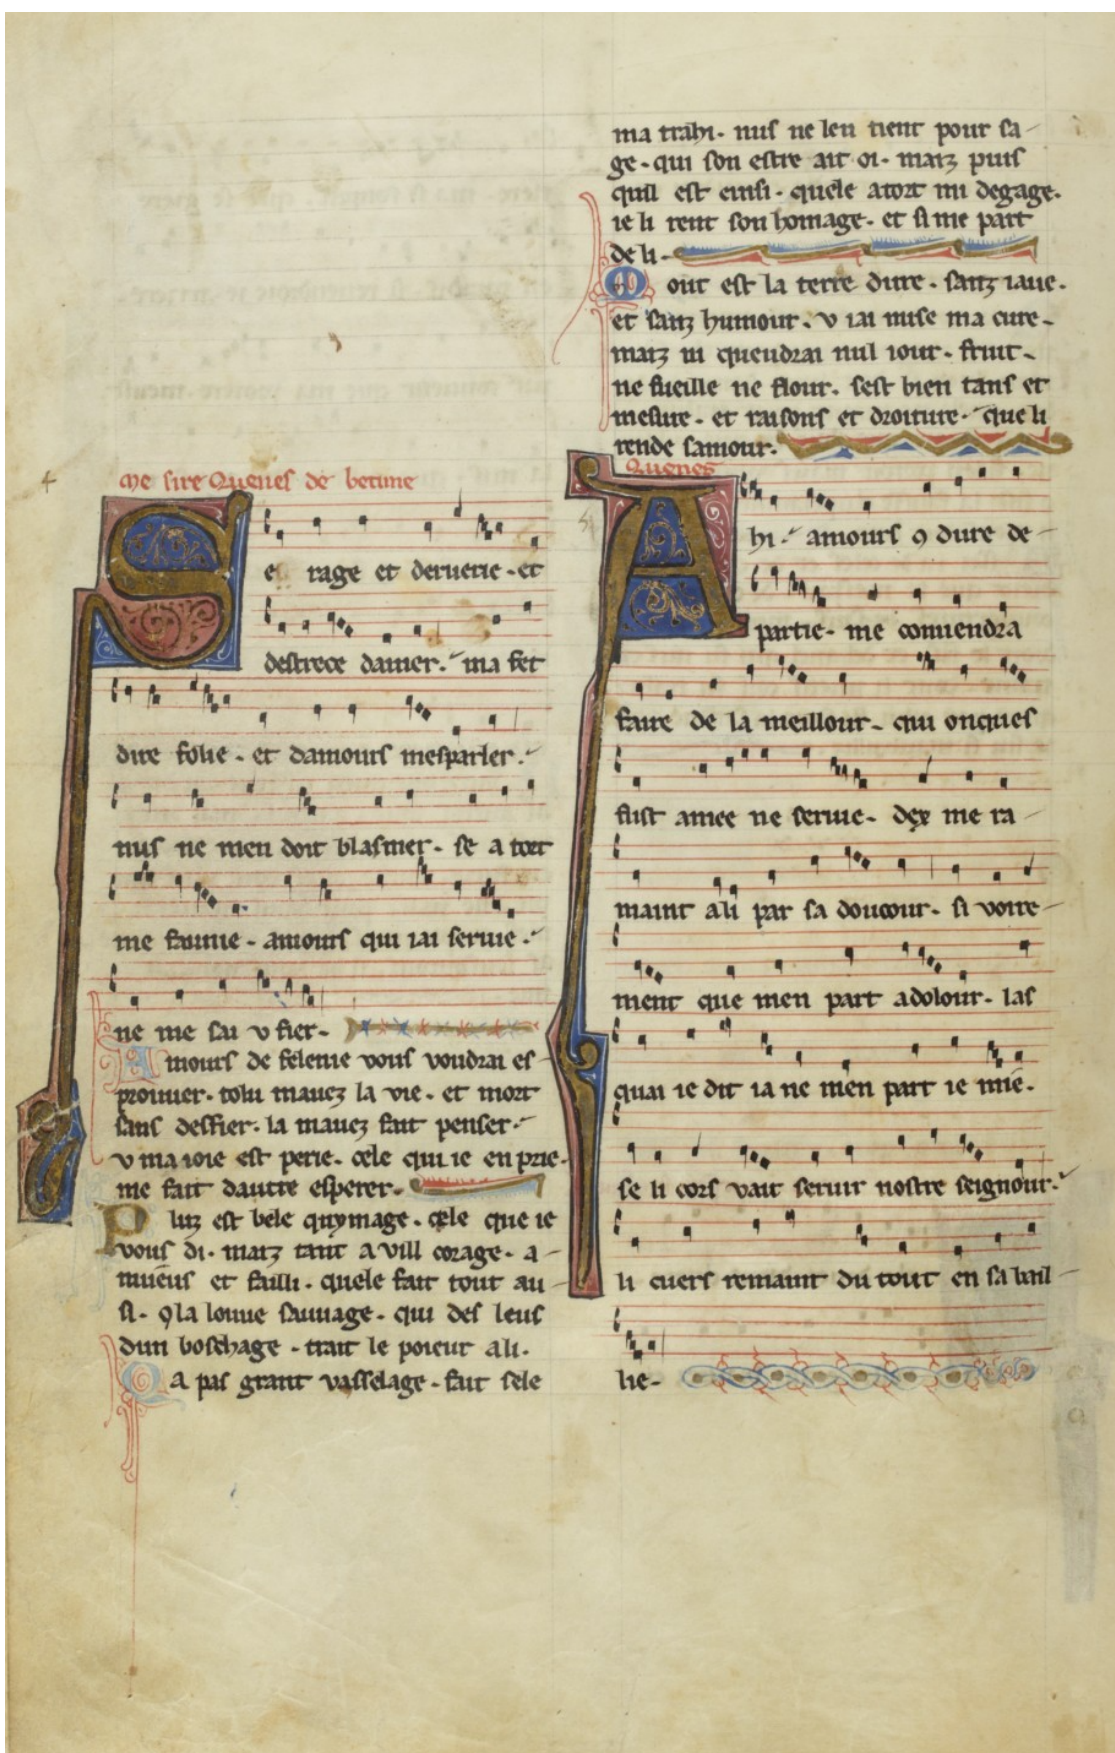 me sire Quenes de betune
Se rage et derverie. et
destrece damer. ma fet
dire folie. et damours mesparler.
nus ne men doit blasmer. se a tort
me faunie. amours qui iai servie.
ne me sai v fier.
Amours de felenie vous voudrai es
prouuer. tolu mauez la vie. et mort
sans deffier. la mauez fait penser.
v ma ioie est perie. cele qui ie en prie.
me fait dautre esperer.
Pluz est bele quymage. cele que ie
vous di. maiz tant a vill corage. a
nuieus et failli. quele fait tout au
si. 9 la louue sauuage. qui des leus
dun boschage. trait le poieur a li.
Qa pas grant vasselage. fait sele
ma trahi. nus ne len tient pour sa
ge. qui son estre ait oi. maiz puis
quil est einsi. quele a tort mi degage.
ie li rent son homage. et si me part
de li.
Mout est la terre dure. sanz iaue.
et sanz humour. v iai mise ma cure.
maiz ni queudrai nul iour. fruit.
ne fueille ne flour. sest bien tans et
mesure. et raisons et droiture. que li
rende samour.
Quenes
Ahi. amours 9 dure de
partie. me convendra
faire de la meillour. qui onques
fust amee ne servie. dex me ra
maint a li par sa doucour. si voire
ment que men part a dolour. las
quai ie dit ia ne men part ie mie.
se li cors vait servir nostre seignour.
li cuers remaint du tout en sa bail
lie.